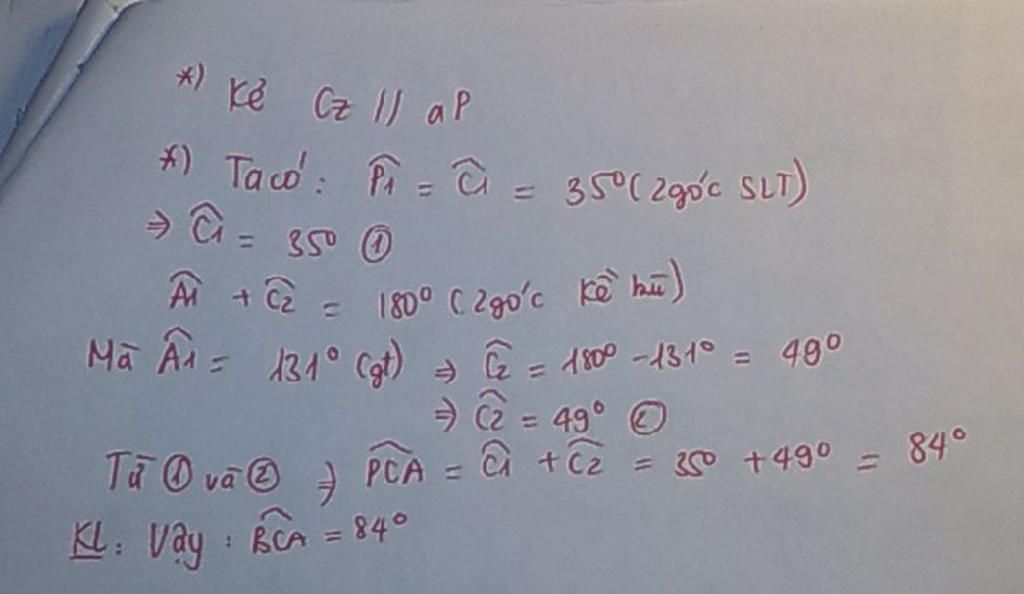 *) Kẻ Cz // aP
*) Ta có: P̂1 = Ĉ1 = 35° (2góc SLT)
⇒ Ĉ1 = 35° ①
Â1 + Ĉ2 = 180° (2góc kề bù)
Mà Â1 = 131° (gt) ⇒ Ĉ2 = 180° - 131° = 49°
⇒ Ĉ2 = 49° ②
Từ ① và ② ⇒ P̂CA = Ĉ1 + Ĉ2 = 35° + 49° = 84°
KL: Vậy: B̂CA = 84°